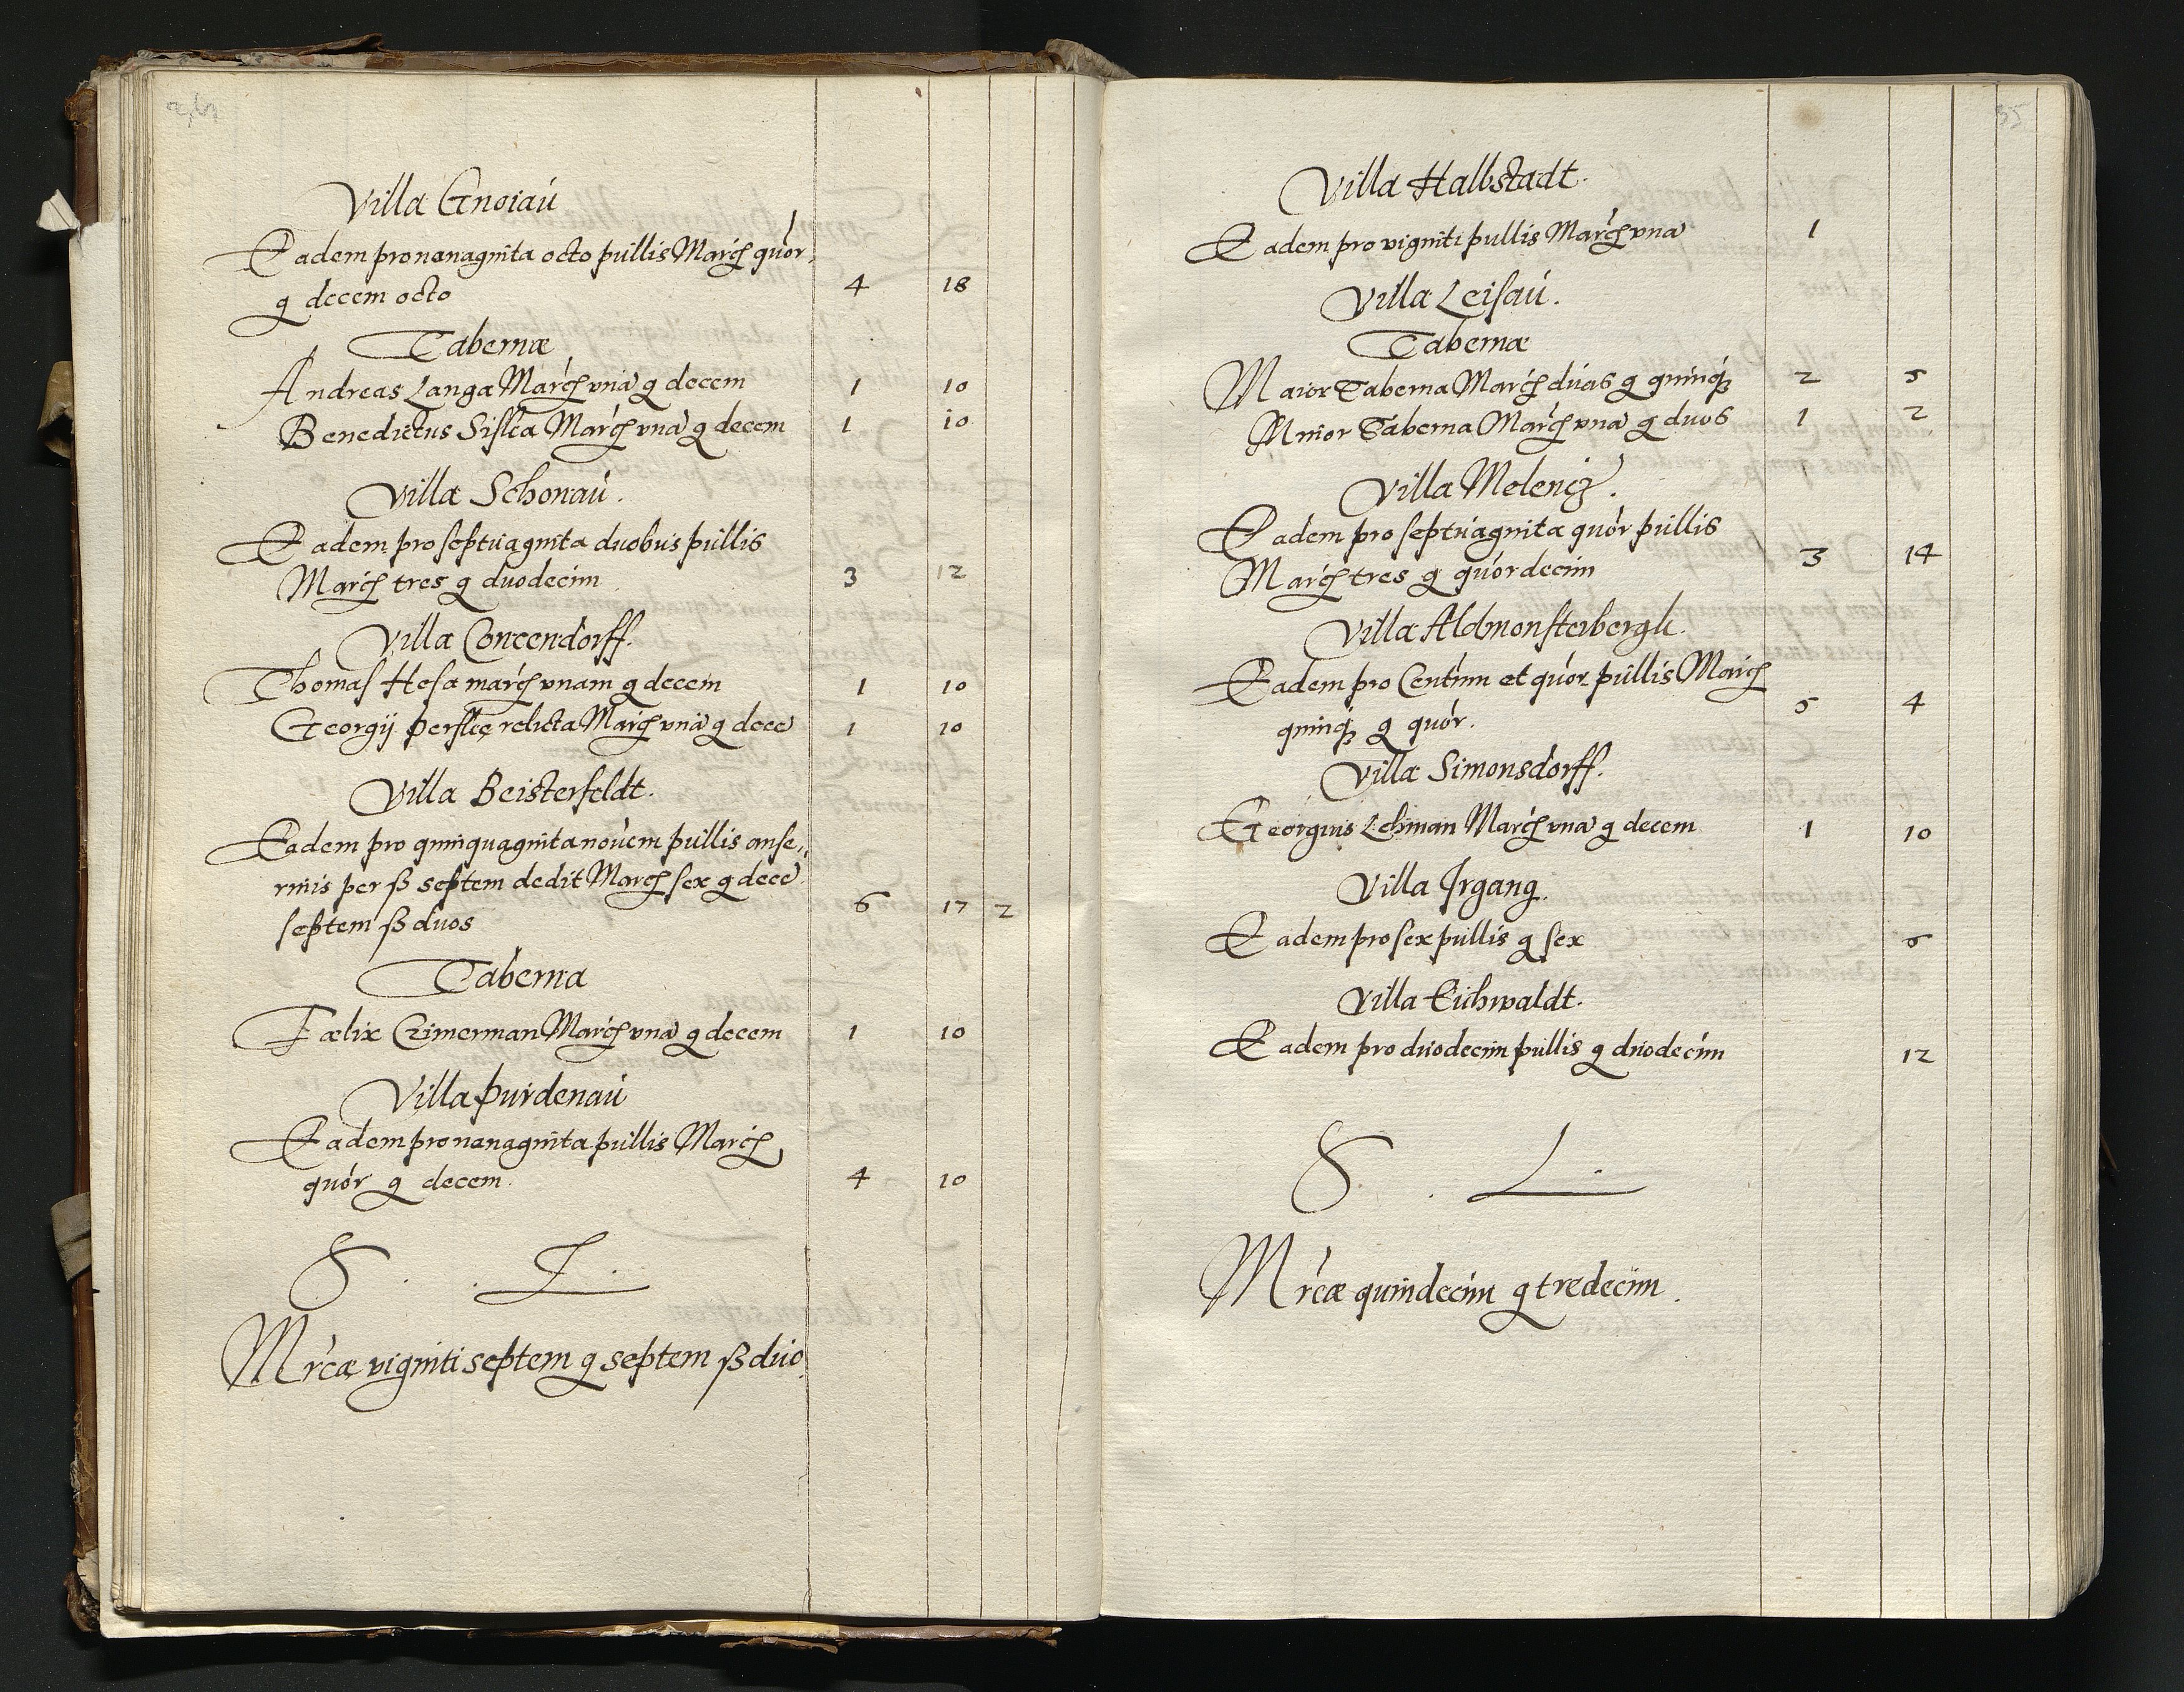 Villa Gnoiaú
Eadem pro nonaginta octo pullis Marcȝ quór,
g decem octo 4 18
Tabernæ
Andreas Langa Marcȝ vnā g decem 1 10
Benedictus Siska Marcȝ vnā g decem 1 10
Villa Schonaú.
Eadem pro septuaginta duobus pullis
Marcȝ tres g duodecim 3 12
Villa Concendorff.
Thomas Hesa marcȝ vnam g decem 1 10
Georgij relicta Marcȝ vnā g decē 1 10
Villa Beisterfeldt.
Eadem pro quinquaginta nouem pullis anse,,
rinis per ß septem dedit Marcȝ sex g decē
septem ß duos 6 17 2
Taberna
Fælix Czimerman Marcȝ vnā g decem 1 10
Villa Purdenaú
Eadem pro nonaginta pullis Marcȝ
quór g decem. 4 10
S. L.
Mrcæ viginti septem g septem ß duo.
35
Villa Halbstadt.
Eadem pro viginti pullis Marcȝ vnā 1
Villa Leisaú.
Tabernæ
Maior Taberna Marcȝ duas g quinqȝ 2 5
Minor Taberna Marcȝ vnā g duos 1 2
Villa Melencȝ.
Eadem pro septuaginta quór pullis
Marcȝ tres g quórdecim 3 14
Villa Aldmonsterbergk.
Eadem pro Centum et quór pullis Marcȝ
quinqȝ g quór. 5 4
Villa Simonsdorff.
Georgius Lehman Marcȝ vnā g decem 1 10
Villa Irgang.
Eadem pro sex pullis g sex 6
Villa Eichwaldt.
Eadem pro duodecim pullis g duodecim 12
S. L.
Mrcæ quindecim g tredecim.